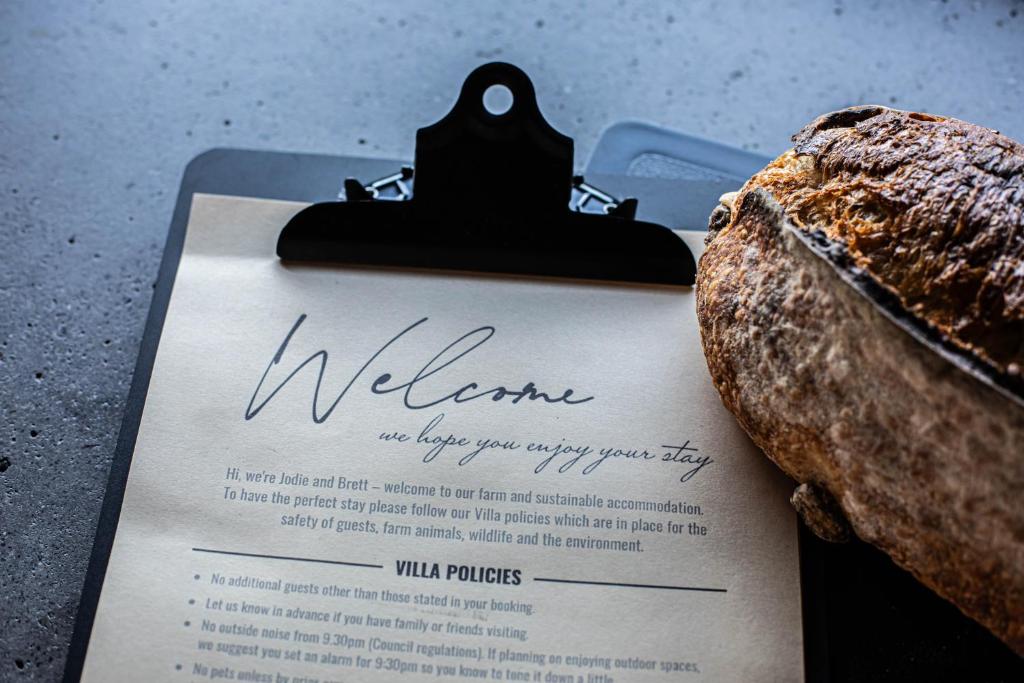 Welcome
we hope you enjoy your stay
Hi, we're Jodie and Brett – welcome to our farm and sustainable accommodation.
To have the perfect stay please follow our Villa policies which are in place for the
safety of guests, farm animals, wildlife and the environment.
VILLA POLICIES
• No additional guests other than those stated in your booking.
• Let us know in advance if you have family or friends visiting.
• No outside noise from 9.30pm (Council regulations). If planning on enjoying outdoor spaces,
we suggest you set an alarm for 9:30pm so you know to tone it down a little.
• No pets unless by prior